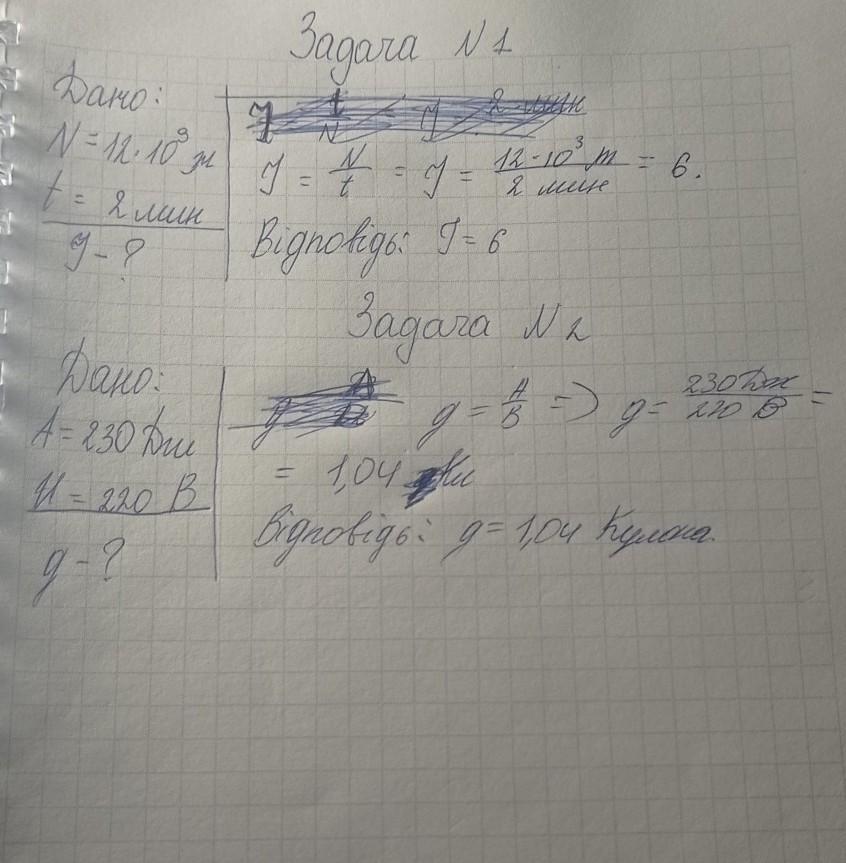 Задача N 1
Дано:
N = 12·10³ т
t = 2 мин
J - ?
J = N/t = J = 12·10³ т/2 мин = 6.
Відповідь: J = 6
Задача N 2
Дано:
A = 230 Дж
U = 220 В
g - ?
g = A/B => g = 230 Дж/220 В =
= 1,04 Кл
Відповідь: g = 1,04 Кулона.